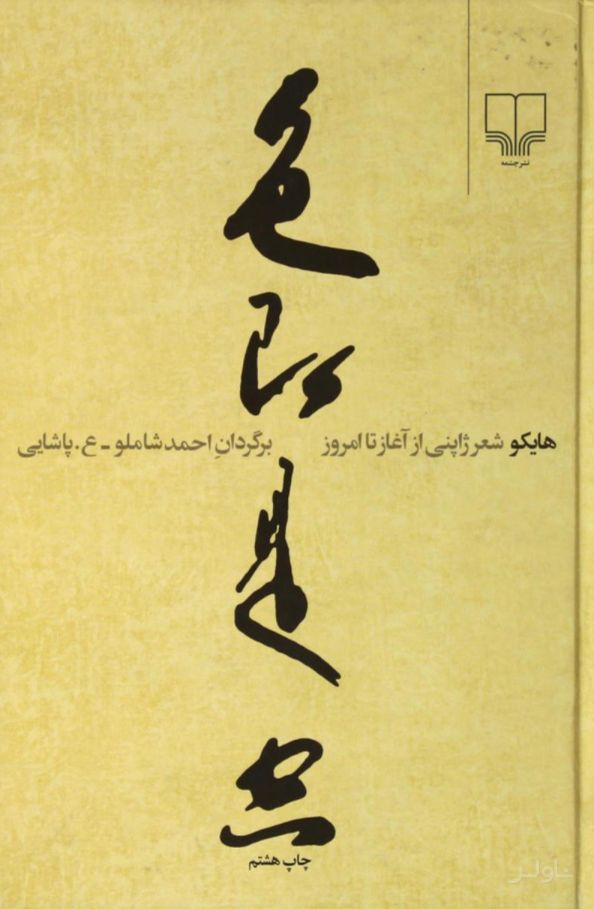 نشر چشمه
色
即
是
空
هایکو شعر ژاپنی از آغاز تا امروز برگردانِ احمد شاملو - ع. پاشایی
چاپ هشتم
ناولر